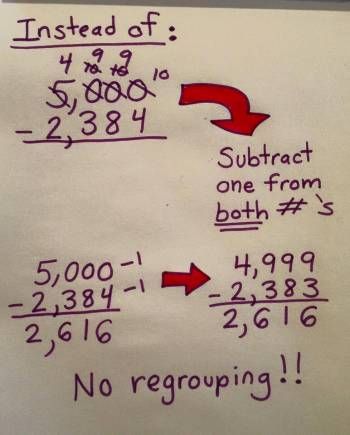 Instead of:
4 9 9
10 10 10
5,000
- 2,384
Subtract
one from
both # 's
5,000 -1
- 2,384 -1
2,616
4,999
- 2,383
2,616
No regrouping!!